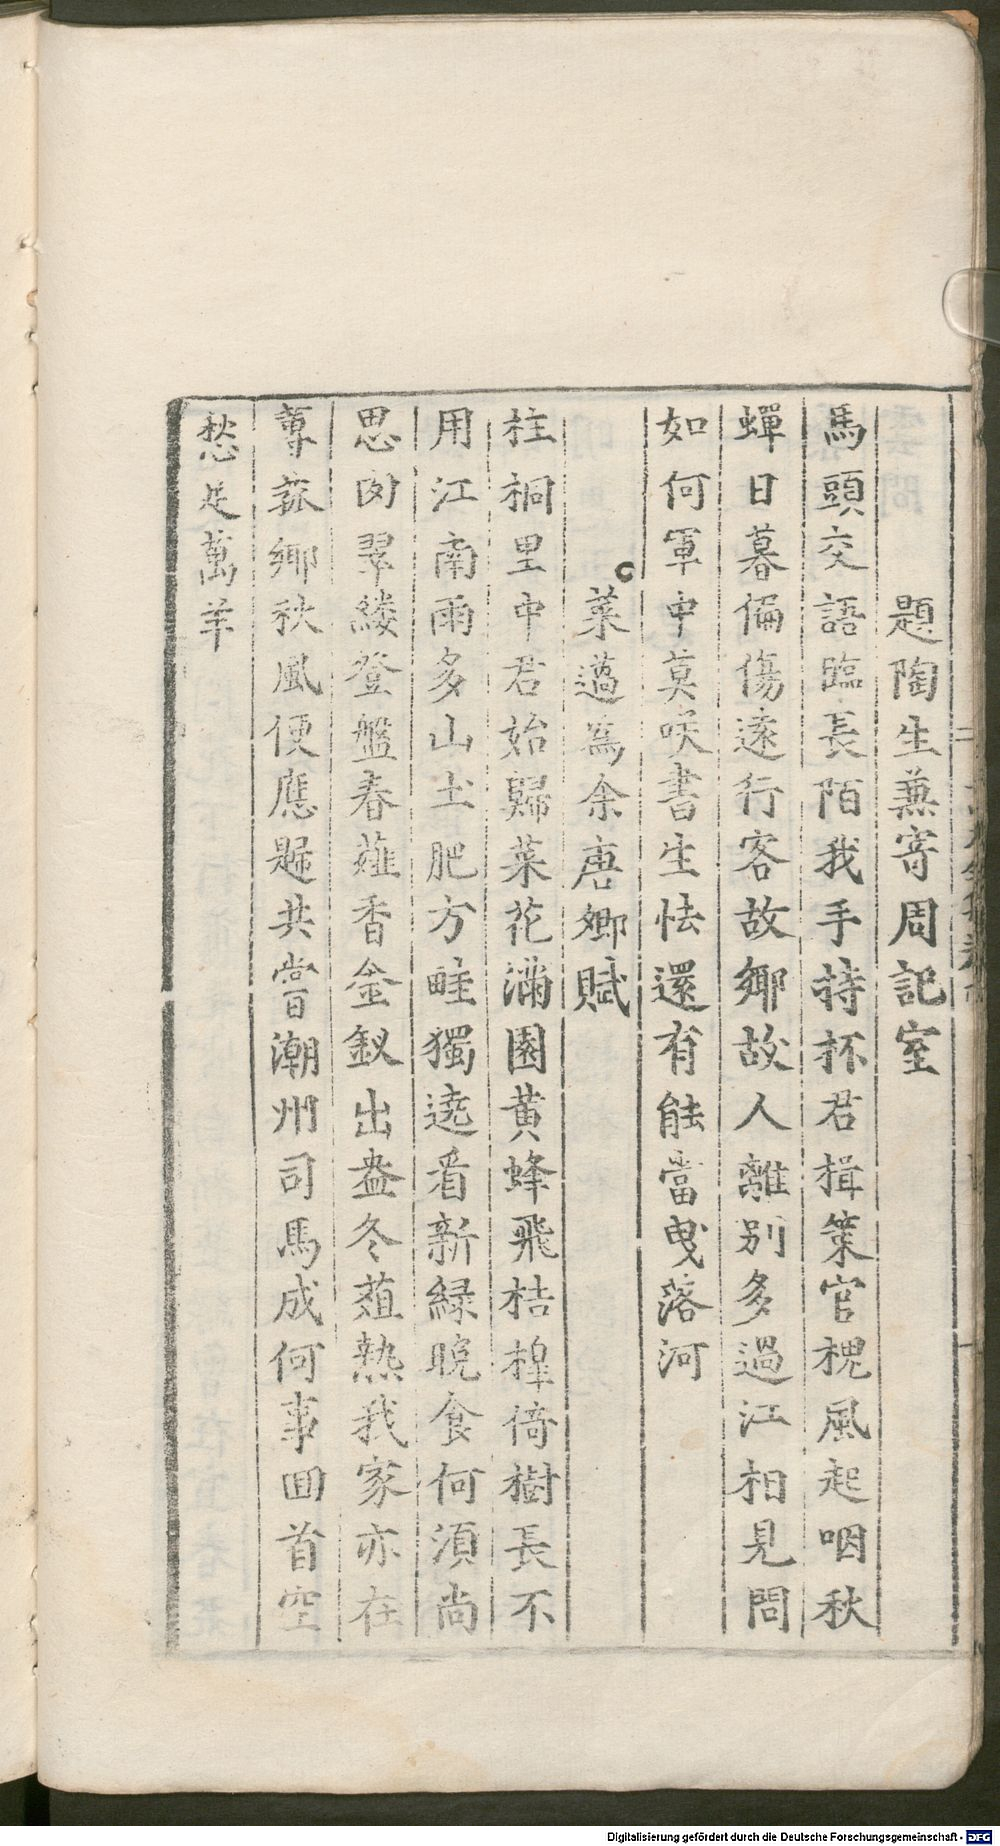 題陶生兼寄周記室
馬頭交語臨長陌我手持杯君揖策官槐風起咽秋
蟬日暮偏傷遠行客故鄉故人離別多過江相見問
如何軍中莫咲書生怯還有能當曳落河
菜薖爲余唐卿賦
桂桐里中君始歸菜花滿園黃蜂飛桔槹倚樹長不
用江南雨多山土肥方畦獨遶看新緑晚食何須尚
思肉翠縷登盤春薤香金釵出盎冬葅熱我家亦在
蓴菰鄉秋風便應歸共甞潮州司馬成何事囬首空
愁足萬羊
Digitalisierung gefördert durch die Deutsche Forschungsgemeinschaft - DFG